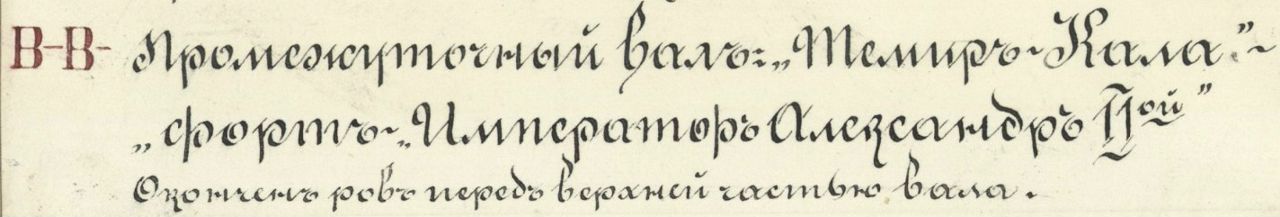 В-В- Промежуточный валъ: „Темиръ-Кала."-
„фортъ-„Императоръ Александръ IIой"
Оконченъ ровъ передъ верхней частью вала.